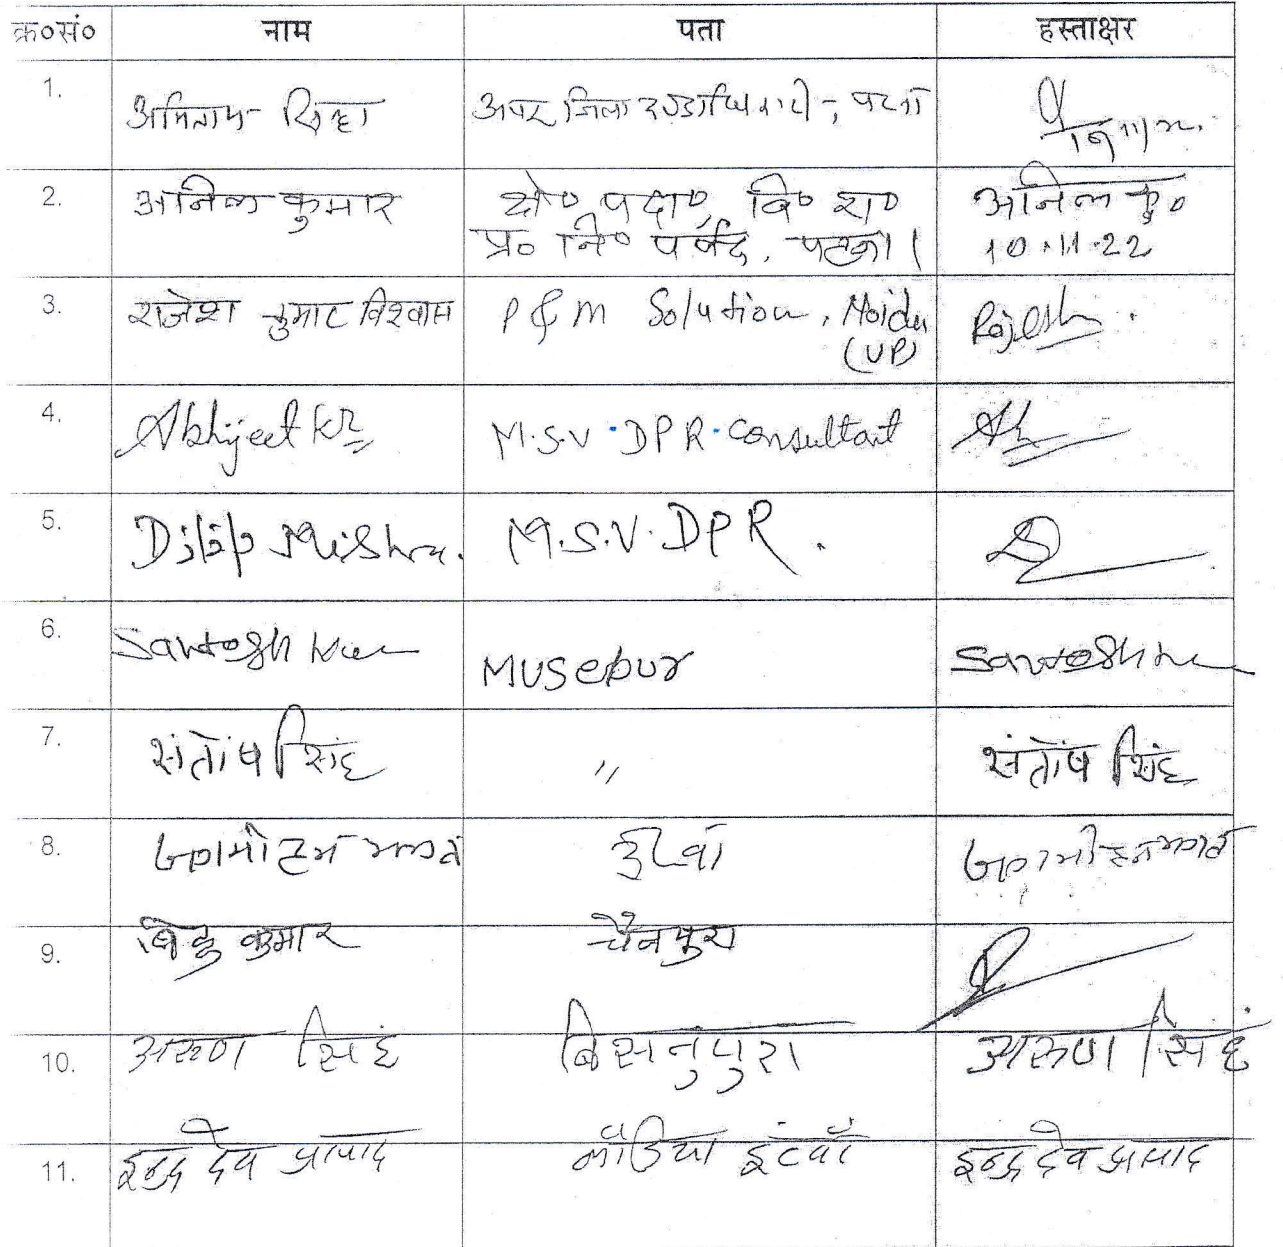 क्र०सं० नाम पता हस्ताक्षर
1. अमिताभ सिन्हा अपर जिला दण्डाधिकारी, पटना
2. अनिल कुमार क्षे० पदा०, बि० रा० अनिल कु०
प्र० नि० पर्षद, पटना। 10.11.22
3. राजेश कुमार विश्वास P & M Solution, Noida Rajesh
(UP)
4. Abhijeet Kr M.S.V. DPR. Consultant
5. Dilip Mishra. M.S.V. DPR.
6. Santosh Kum Musepur Santosh
7. संतोष सिंह " संतोष सिंह
8. ईटवां
9. कुमार चैनपुरा
10. अरुण सिंह बिसनुपुरा अरुण सिंह
11. इन्द्र देव प्रसाद इटवाँ इन्द्र देव प्रसाद